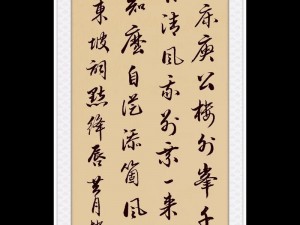 床庾公樓外峰千
清風我別乘一來
知麼自從添箇風
東坡詞點絳唇